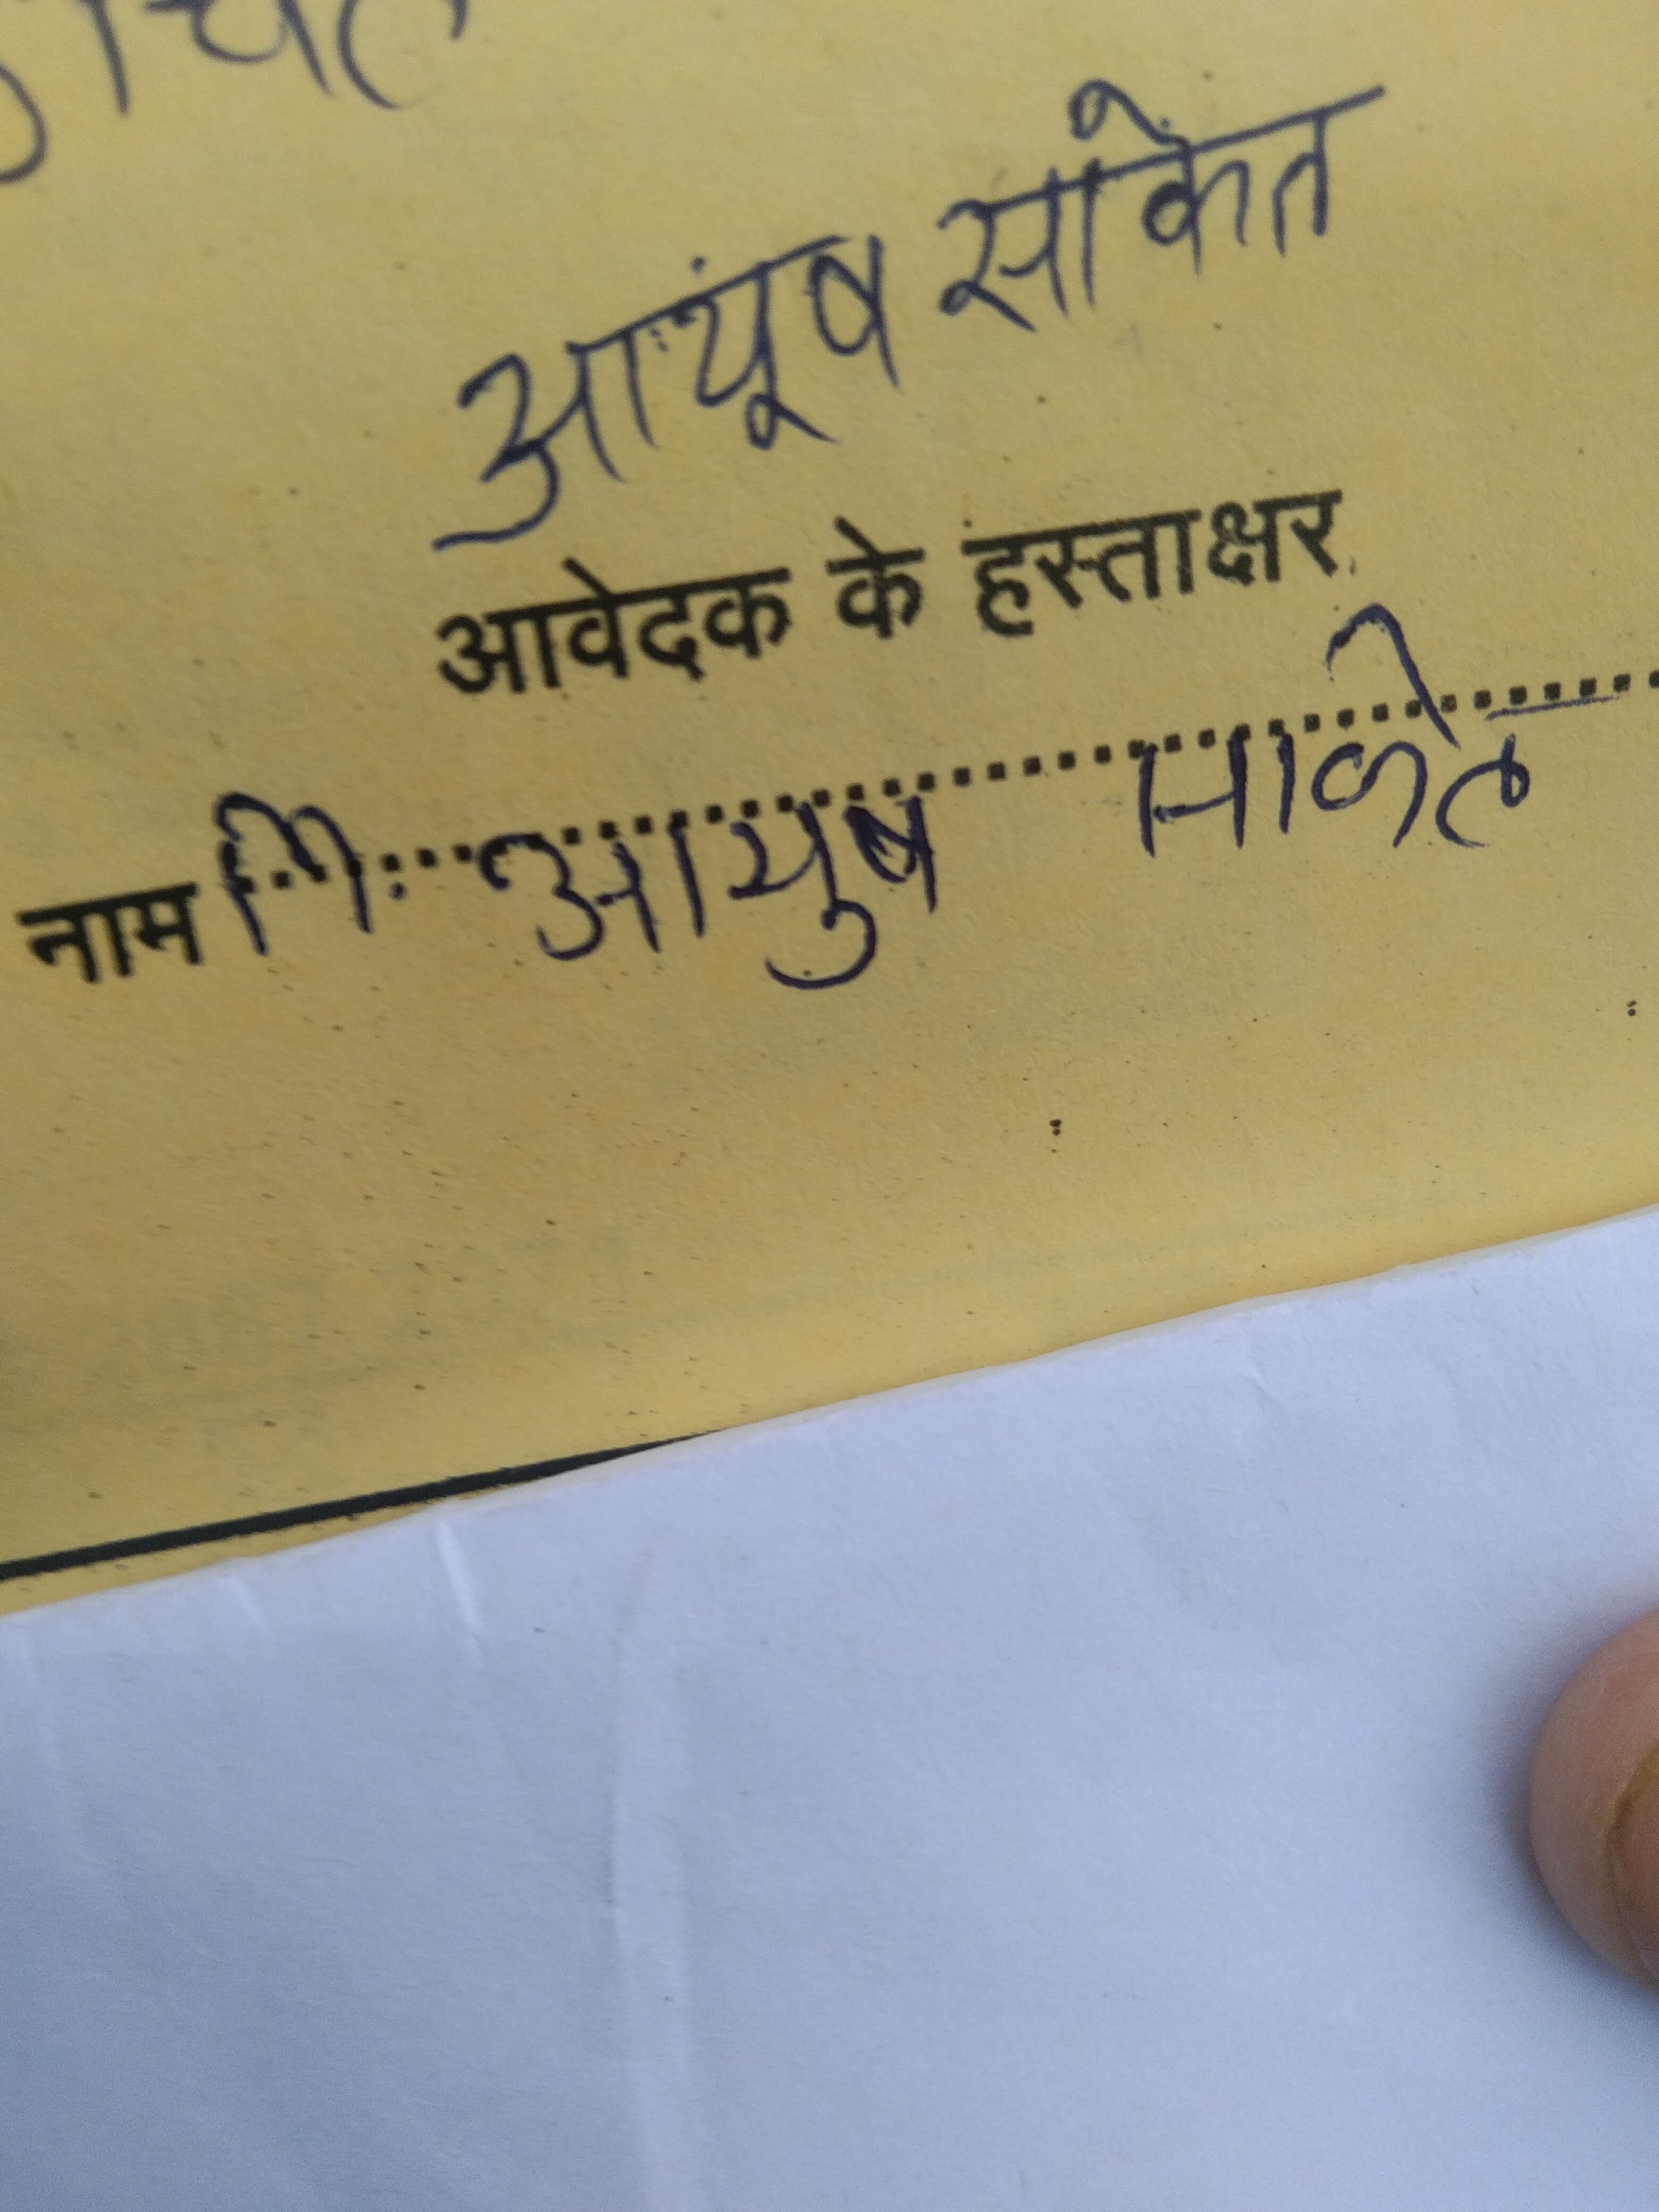 आयूष साकेत
आवेदक के हस्ताक्षर
नाम आयुष साकेत